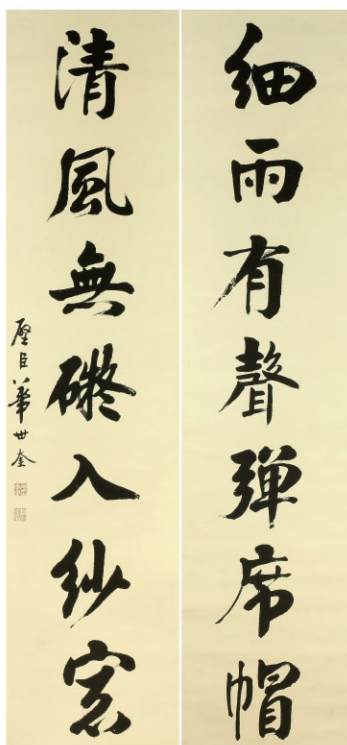 细雨有聲彈席帽
清風無礙入紗窓
壁臣華世奎